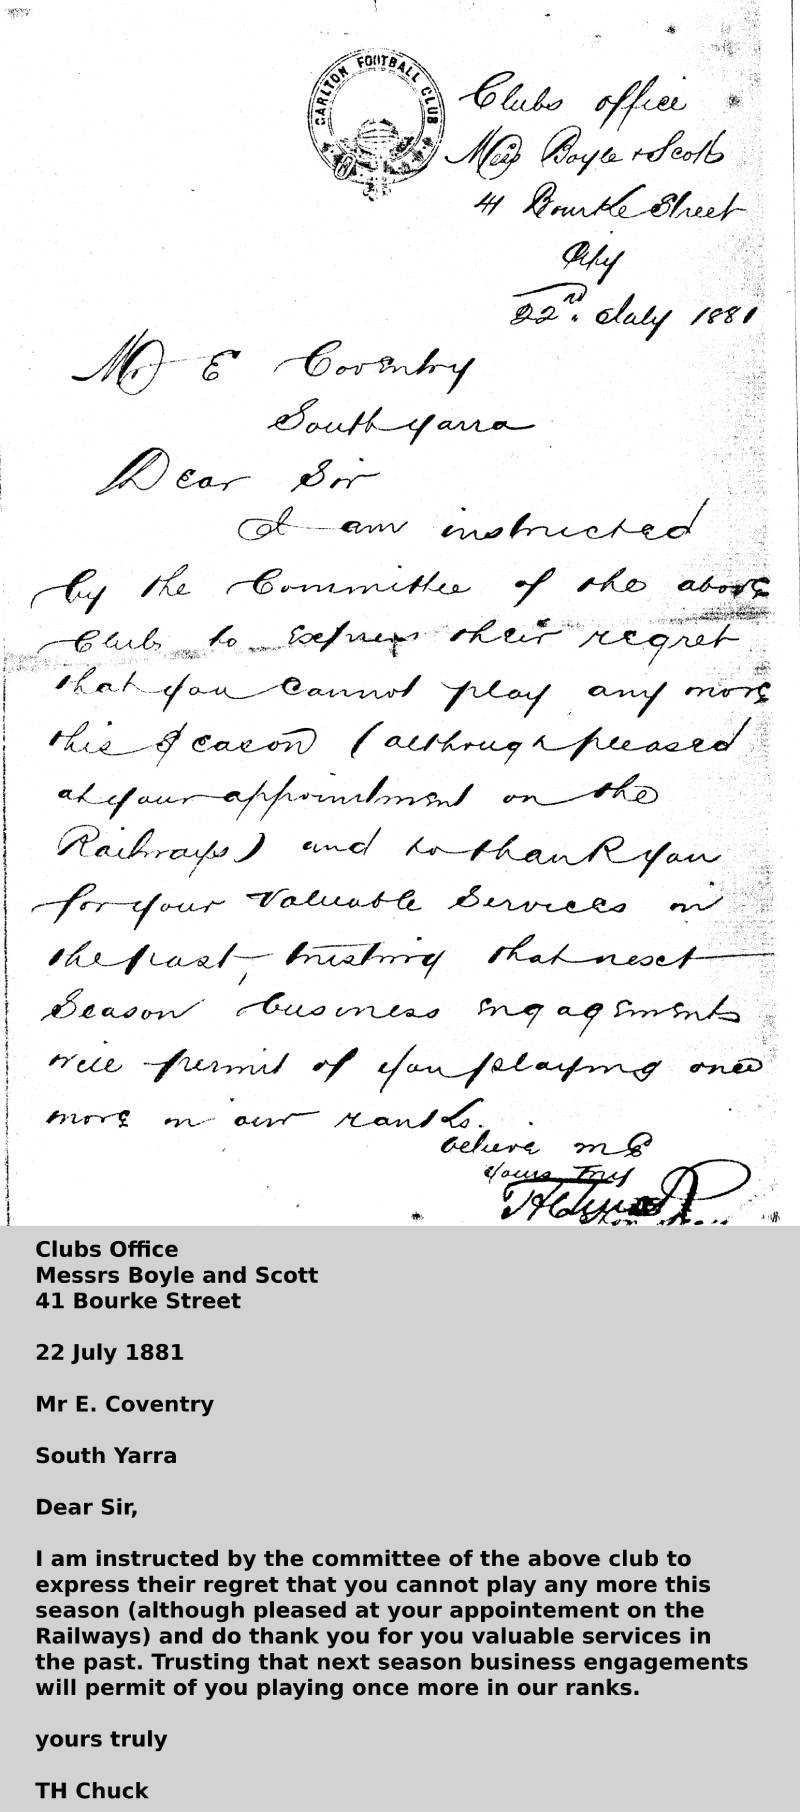 CARLTON FOOTBALL CLUB
Clubs office
Boyle & Scotts
41 Bourke Street
City
22nd. July 1881
Mr E Coventry
South Yarra
Dear Sir
I am instructed
by the Committee of the above
Club to Express their regret
that you cannot play any more
this Season (although pleased
at your appointment on the
Railways) and to thank you
for your valuable Services in
the past, trusting that next
Season business engagements
will permit of you playing once
more in our ranks.
believe me
Yours Truly
Clubs Office
Messrs Boyle and Scott
41 Bourke Street
22 July 1881
Mr E. Coventry
South Yarra
Dear Sir,
I am instructed by the committee of the above club to
express their regret that you cannot play any more this
season (although pleased at your appointement on the
Railways) and do thank you for you valuable services in
the past. Trusting that next season business engagements
will permit of you playing once more in our ranks.
yours truly
TH Chuck